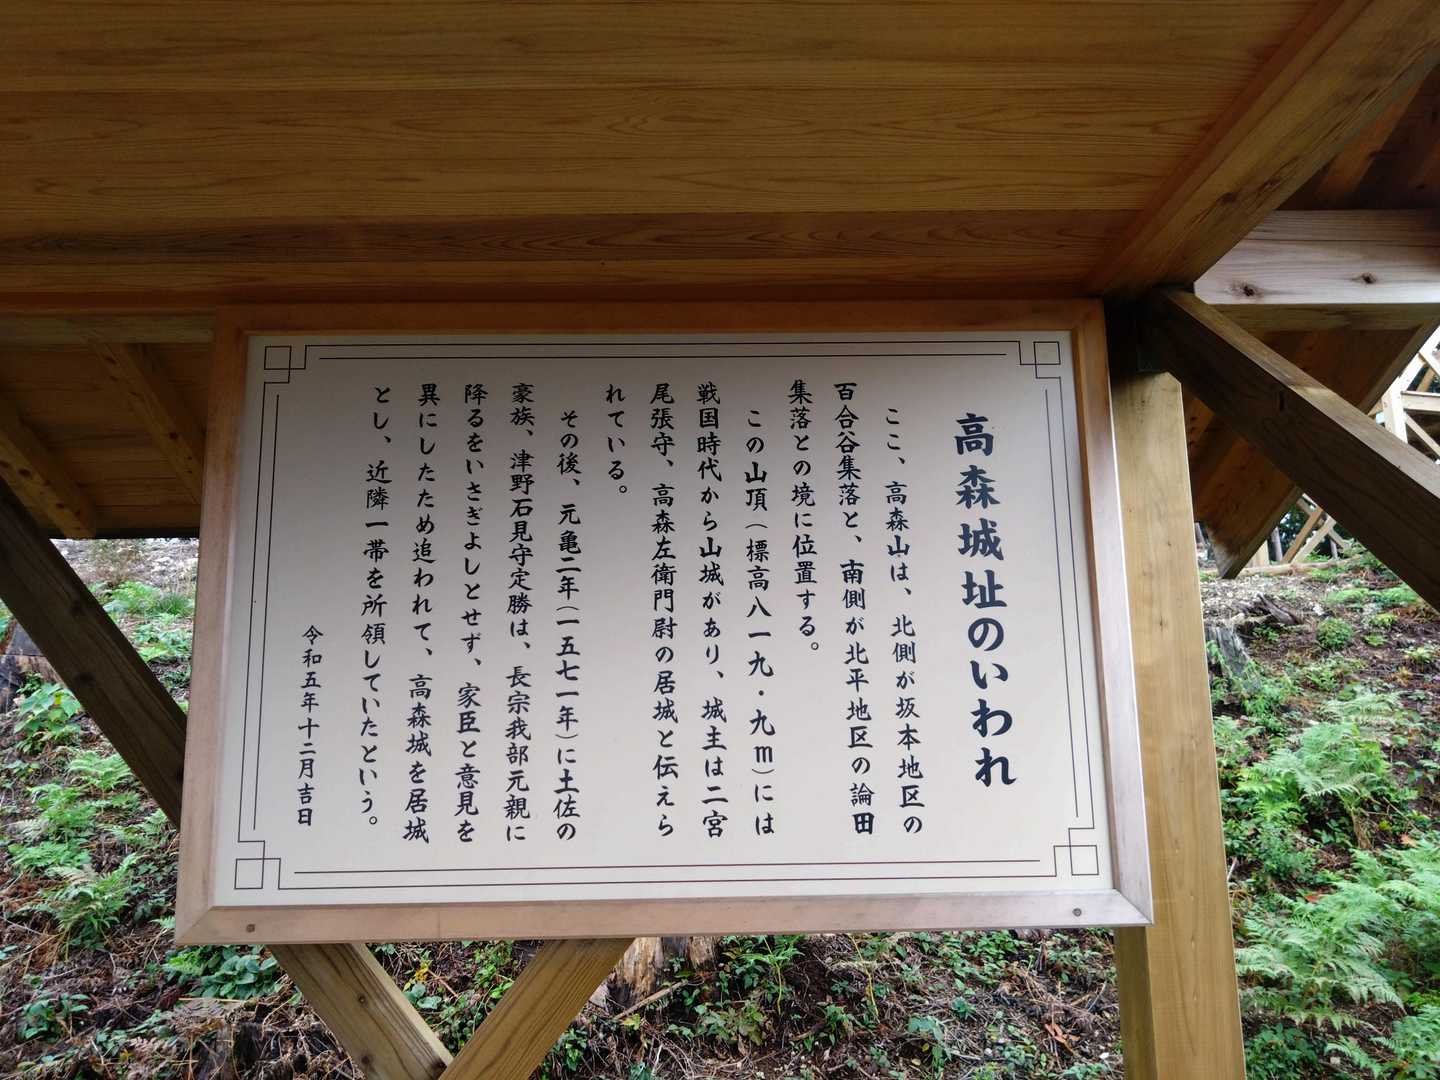 高森城址のいわれ
ここ、高森山は、北側が坂本地区の
百合谷集落と、南側が北平地区の論田
集落との境に位置する。
この山頂（標高八一九・九m）には
戦国時代から山城があり、城主は二宮
尾張守、高森左衛門尉の居城と伝えら
れている。
その後、元亀二年（一五七一年）に土佐の
豪族、津野石見守定勝は、長宗我部元親に
降るをいさぎよしとせず、家臣と意見を
異にしたため追われて、高森城を居城
とし、近隣一帯を所領していたという。
令和五年十二月吉日